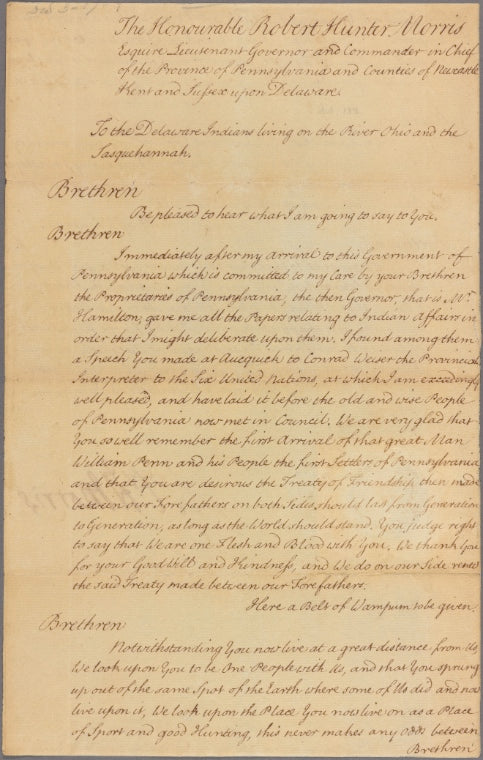 The Honourable Robert Hunter Morris
Esquire Lieutenant Governor and Commander in Chief
of the Province of Pennsylvania and Counties of Newcastle
Kent and Sussex upon Delaware.
To the Delaware Indians living on the River Ohio and the
Sasquehannah.
Brethren
Be pleased to hear what I am going to say to You.
Brethren
Immediately after my Arrival to this Government of
Pennsylvania which is committed to my Care by your Brethren
the Proprietaries of Pennsylvania, the then Governor, that is Mr.
Hamilton, gave me all the Papers relating to Indian Affairs in
order that I might deliberate upon them. I found among them
a Speech You made at Aucquick to Conrad Weiser the Provincial
Interpreter to the Six United Nations, at which I am exceedingly
well pleased, and have laid it before the old and wise People
of Pennsylvania now met in Council. We are very glad that
You so well remember the first Arrival of that great Man
William Penn and his People the first Settler of Pennsylvania
and that You are desirous the Treaty of Friendship then made
between our Forefathers on both Sides, should last from Generation
to Generation, as long as the World should stand. You judge right
to say that We are one Flesh and Blood with You, We thank You
for your Good Will and Kindness, and We do on our Side renew
the said Treaty made between our Forefathers.
Here a Belt of Wampum to be given.
Brethren
Notwithstanding You now live at a great distance from Us,
We look upon You to be One People with Us, and that You sprung
up out of the same Spot of the Earth where some of Us did and now
live upon it, We look upon the Place You now live on as a Place
of Sport and good Hunting, this never makes any odds between
Brethren